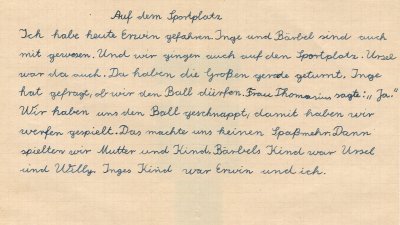 Auf dem Sportplatz
Ich habe heute Erwin gefahren. Inge und Bärbel sind auch
mit gewesen. Und wir gingen auch auf den Sportplatz. Ursel
war da auch. Da haben die Großen gerade geturnt. Inge
hat gefragt, ob wir den Ball dürfen. Frau Thomasius sagte: „Ja."
Wir haben uns den Ball geschnappt, damit haben wir
werfen gespielt. Das machte uns keinen Spaßmehr. Dann
spielten wir Mutter und Kind. Bärbels Kind war Ursel
und Willy. Inges Kind war Erwin und ich.